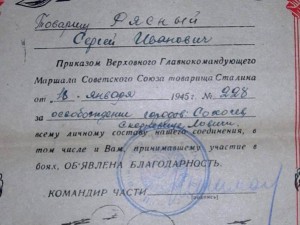 Товарищ Рясный
Сергей Иванович
Приказом Верховного Главнокомандующего
Маршала Советского Союза товарища Сталина
от 18 января 1945г. № 228
за освобождение городов Сохачев
Лович
всему личному составу нашего соединения, в
том числе и Вам, принимавшему участие в
боях, ОБ'ЯВЛЕНА БЛАГОДАРНОСТЬ.
КОМАНДИР ЧАСТИ